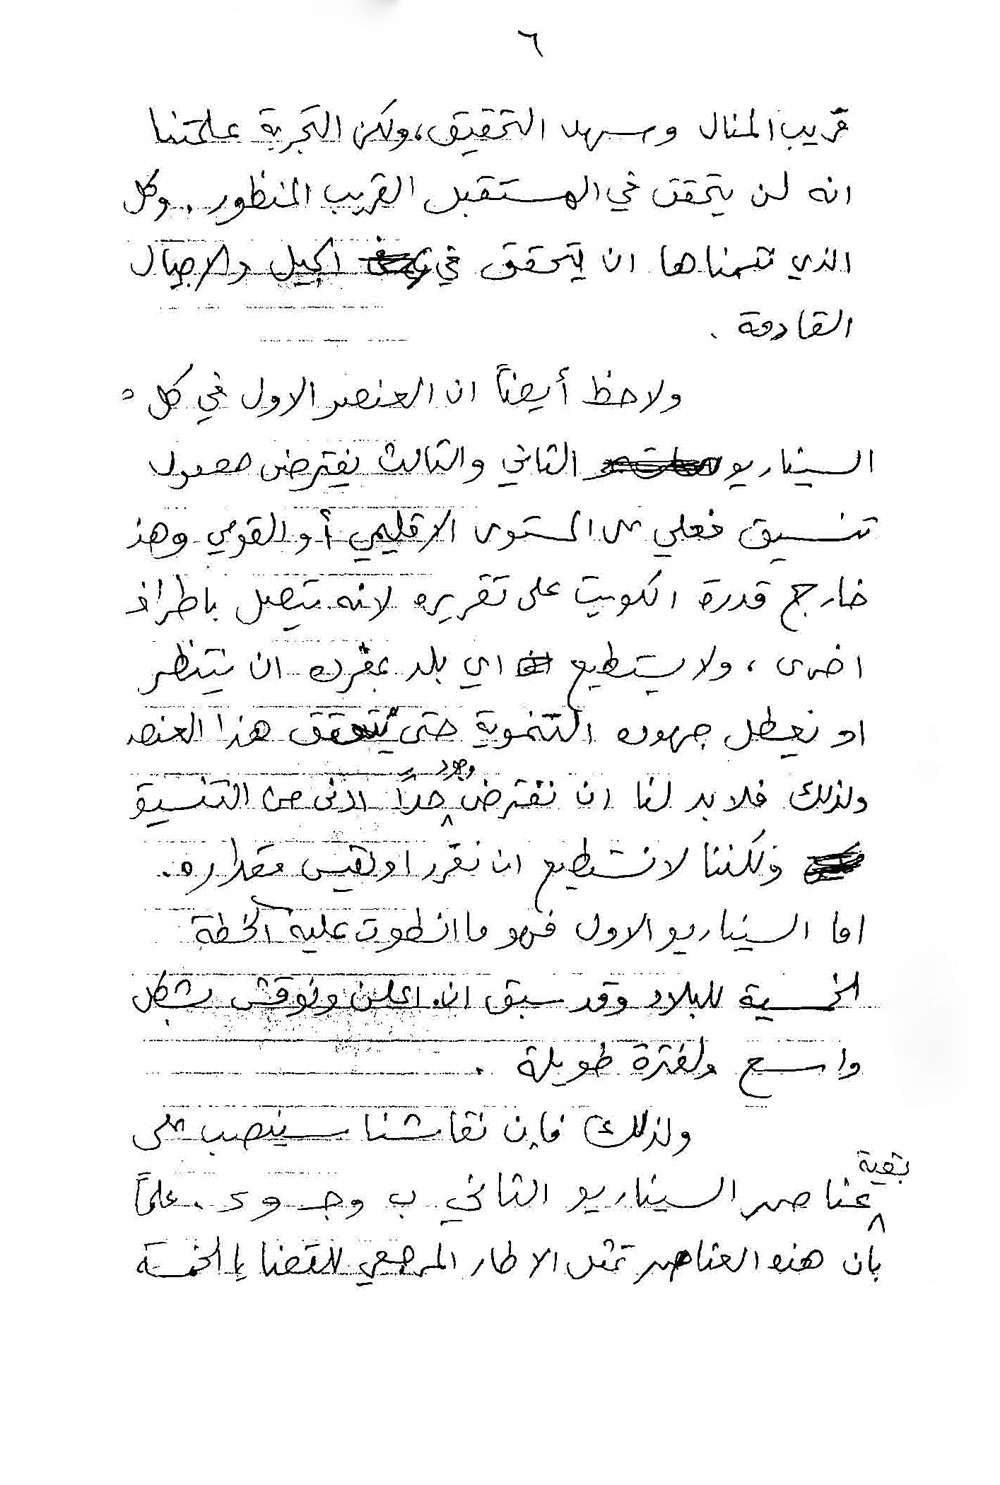 ٦
قريب المنال وسهل التحقيق، ولكن التجربة علمتنا
انه لن يتحقق في المستقبل القريب المنظور. وكل
الذي نتمناها ان يتحقق في الجيل والاجيال
القادمة .
ولاحظ أيضاً ان العنصر الاول في كل
السيناريو الثاني والثالث يفترض حصول
تنسيق فعلي على المستوى الاقليمي أو القومي وهذ
خارج قدرة الكويت على تقريره لانه يتصل باطراف
اخرى ، ولا يستطيع اي بلد بمفرده ان ينتظر
او يعطل جهوده التنموية حتى يتحقق هذا العنصر
ولذلك فلابد لنا ان نفترض وجود حداً ادنى من التنسيق
ولكننا لا نستطيع ان نقرر او نقيس مقداره.
اما السيناريو الاول فهو ما انطوت عليه الخطة
الخمسية للبلاد وقد سبق ان اعلن ونوقش بشكل
واسع ولفترة طويلة .
ولذلك فإن نقاشنا سينصب على
بقية عناصر السيناريو الثاني ب وجـ و د . علماً
بان هذه العناصر تمثل الاطار المرجعي للقضايا الخمسة